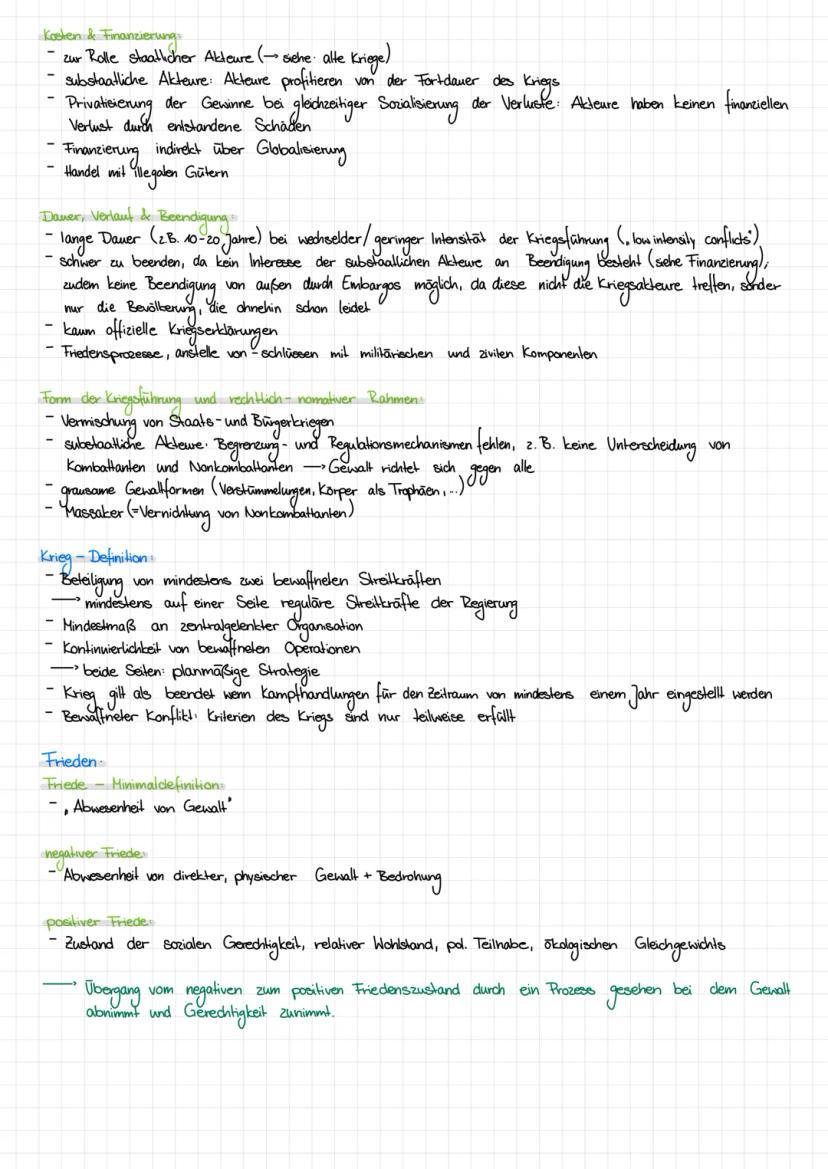 Kosten & Finanzierung:
- zur Rolle staatlicher Akteure (→ siehe: alte Kriege)
- substaatliche Akteure: Akteure profitieren von der Fortdauer des Kriegs
- Privatisierung der Gewinne bei gleichzeitiger Sozialisierung der Verluste: Akteure haben keinen finanziellen
Verlust durch entstandene Schäden
- Finanzierung indirekt über Globalisierung
- Handel mit illegalen Gütern
Dauer, Verlauf & Beendigung:
- lange Dauer (z.B. 10-20 Jahre) bei wechselder/geringer Intensität der Kriegsführung („low intensity conflicts")
- schwer zu beenden, da kein Interesse der substaatlichen Akteure an Beendigung besteht (siehe Finanzierung),
zudem keine Beendigung von außen durch Embargos möglich, da diese nicht die Kriegsakteure treffen, sonder
nur die Bevölkerung, die ohnehin schon leidet
- kaum offizielle Kriegserklärungen
- Friedensprozesse, anstelle von -schlüssen mit militärischen und zivilen Komponenten
Form der Kriegsführung und rechtlich-nomativer Rahmen:
- Vermischung von Staats- und Bürgerkriegen
- substaatliche Akteure: Begrenzung- und Regulationsmechanismen fehlen, z.B. keine Unterscheidung von
Kombattanten und Nonkombattanten → Gewalt richtet sich gegen alle
- grausame Gewaltformen (Verstümmelungen, Körper als Trophäen, ...)
- Massaker (=Vernichtung von Nonkombattanten)
Krieg - Definition:
- Beteiligung von mindestens zwei bewaffneten Streitkräften
→ mindestens auf einer Seite reguläre Streitkräfte der Regierung
- Mindestmaß an zentralgelenkter Organisation
- Kontinuierlichkeit von bewaffneten Operationen
→ beide Seiten: planmäßige Strategie
- Krieg gilt als beendet wenn Kampfhandlungen für den Zeitraum von mindestens einem Jahr eingestellt werden
- Bewaffneter Konflikt: Kriterien des Kriegs sind nur teilweise erfüllt
Frieden:
Friede - Minimaldefinition:
- „Abwesenheit von Gewalt"
negativer Friede:
- Abwesenheit von direkter, physischer Gewalt + Bedrohung
positiver Friede:
- Zustand der sozialen Gerechtigkeit, relativer Wohlstand, pol. Teilhabe, ökologischen Gleichgewichts
→ Übergang vom negativen zum positiven Friedenszustand durch ein Prozess gesehen bei dem Gewalt
abnimmt und Gerechtigkeit zunimmt.